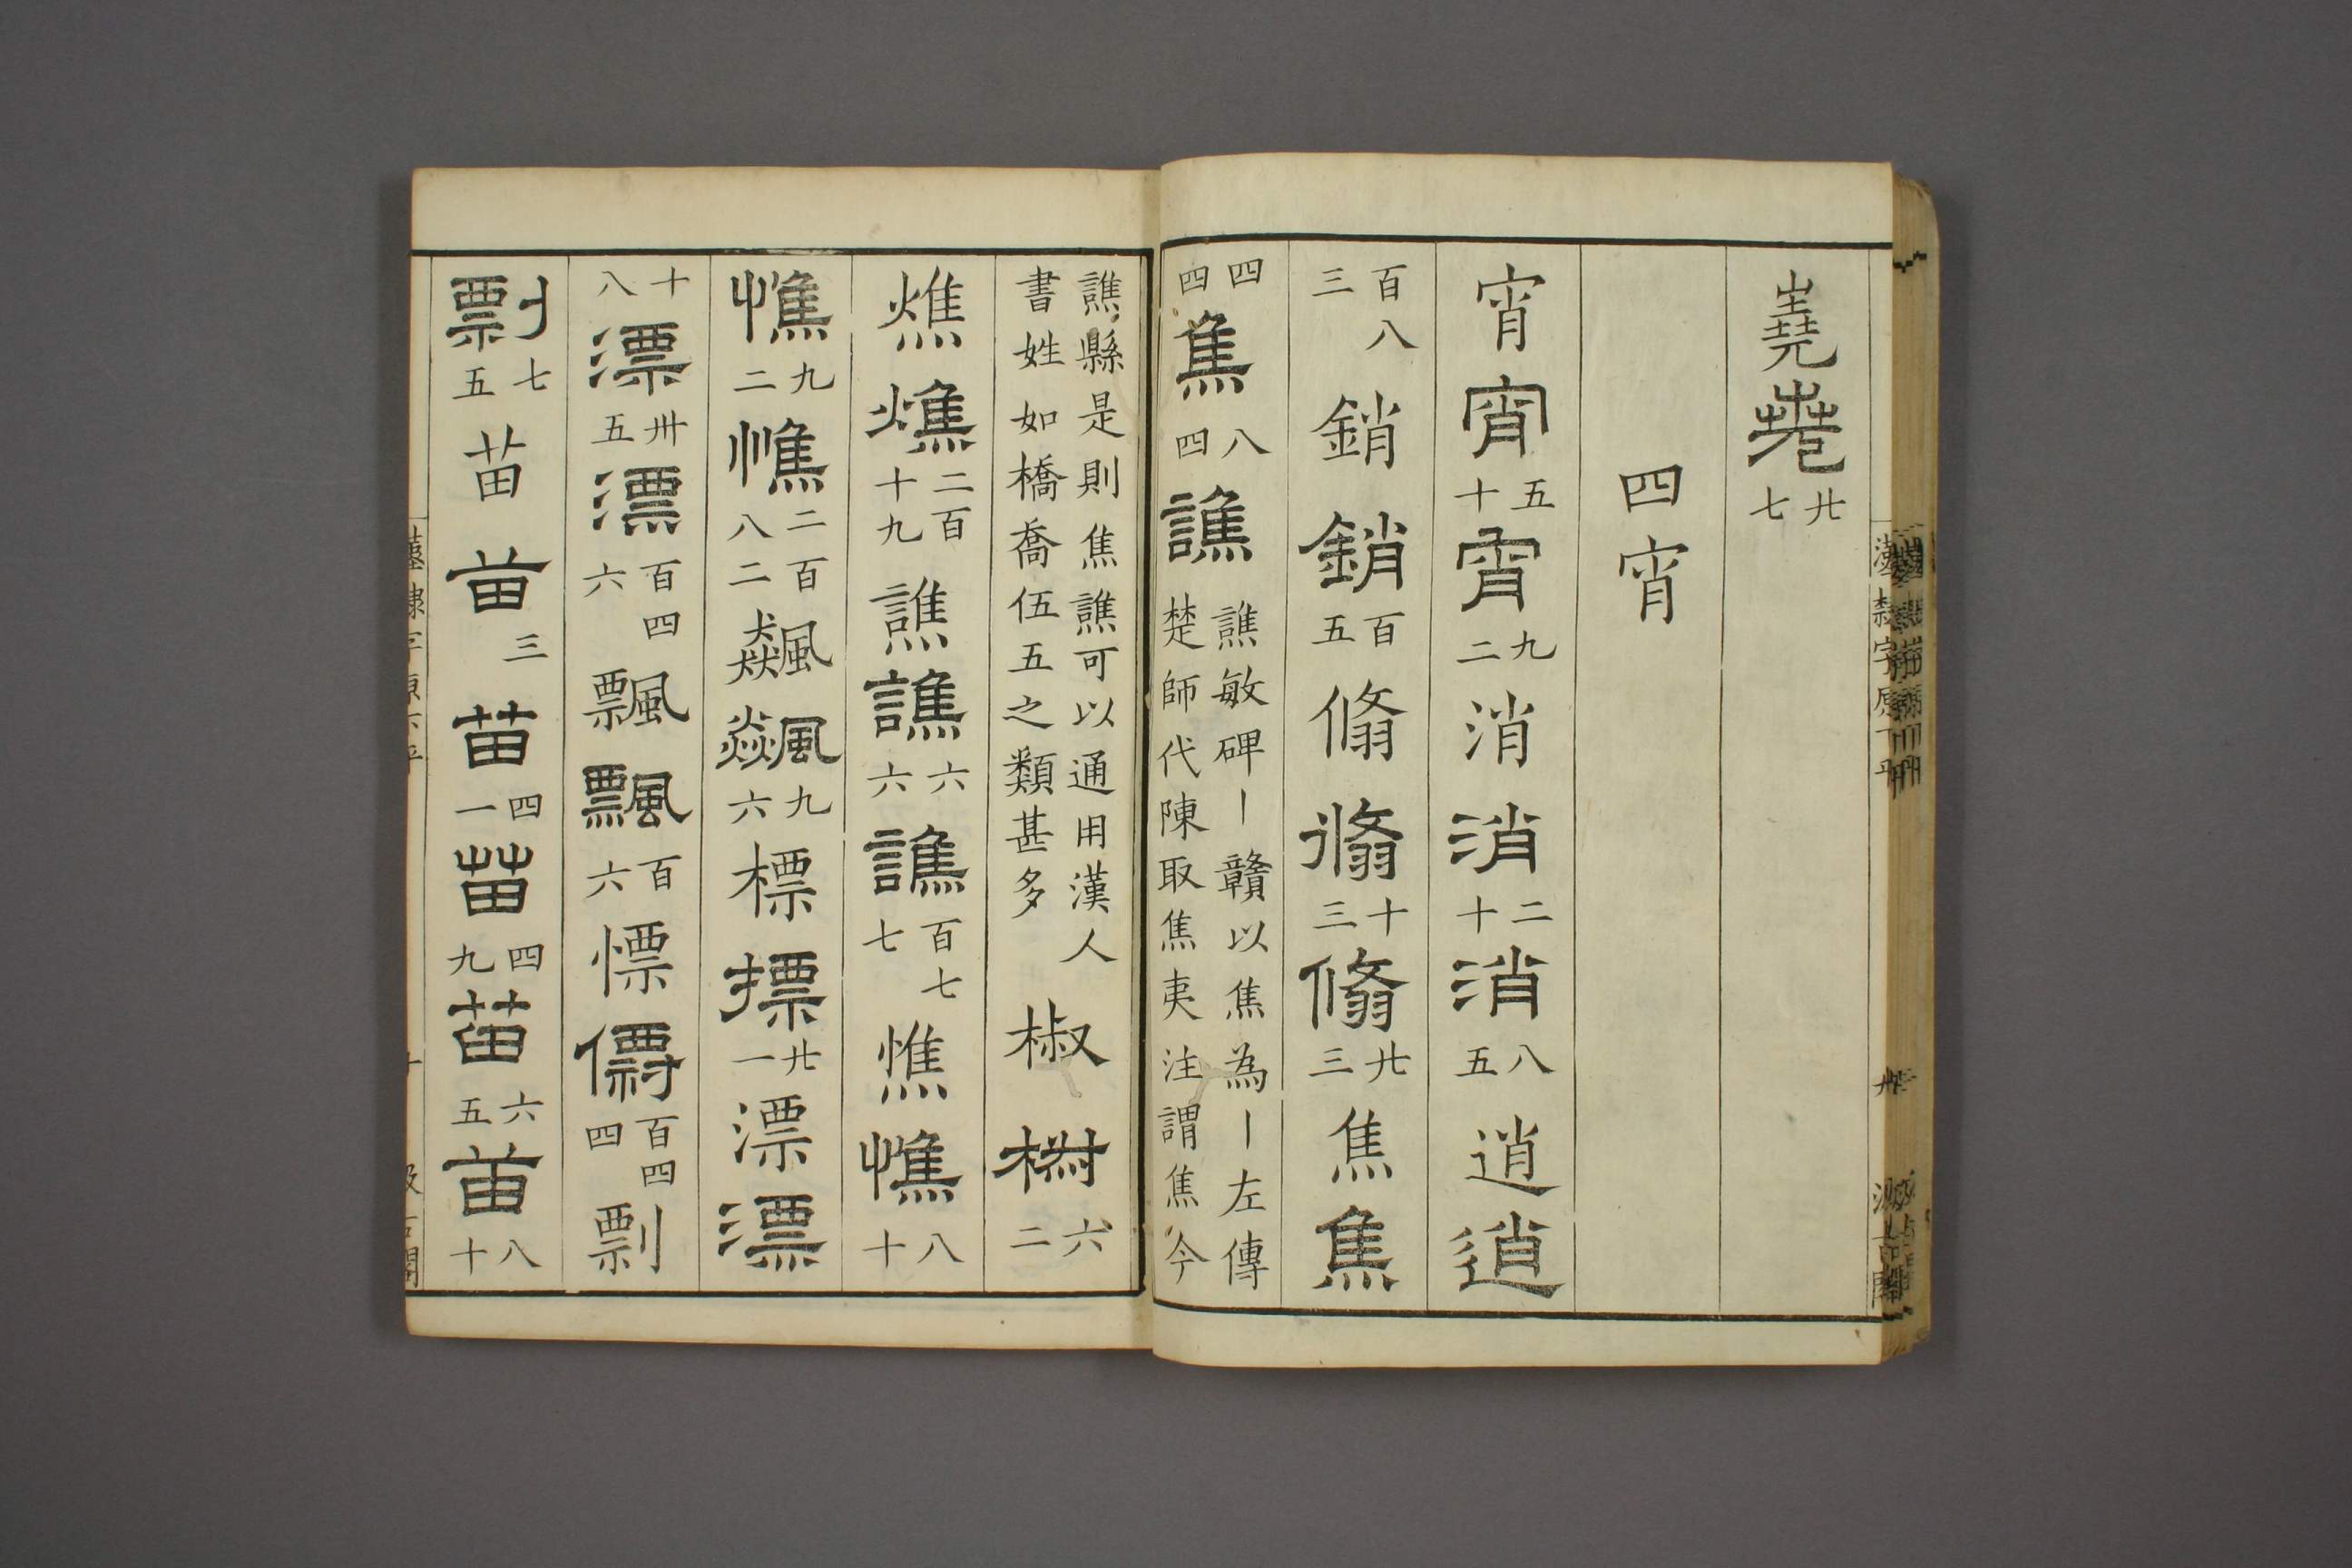 嶤嶤廿七
四宵
宵宵五十宵九二消消二十消八五逍逍
百八三銷銷百五翛翛十三翛廿三焦焦
四四焦八四譙譙敏碑〡贛以焦為〡左傳
楚師代陳取焦夷注謂焦今
譙縣是則焦譙可以通用漢人
書姓如橋喬伍五之類甚多椒椒六二
燋燋二百十九譙譙六六譙百七七憔憔八十
憔九二憔二百八二飆飆九六標標廿一漂漂
十八漂卅五漂百四六飄飄百六慓慓百四四剽
剽七五苗苗三苗四一苗四九苗六五苗八十
漢隸字原下平
汲古閣